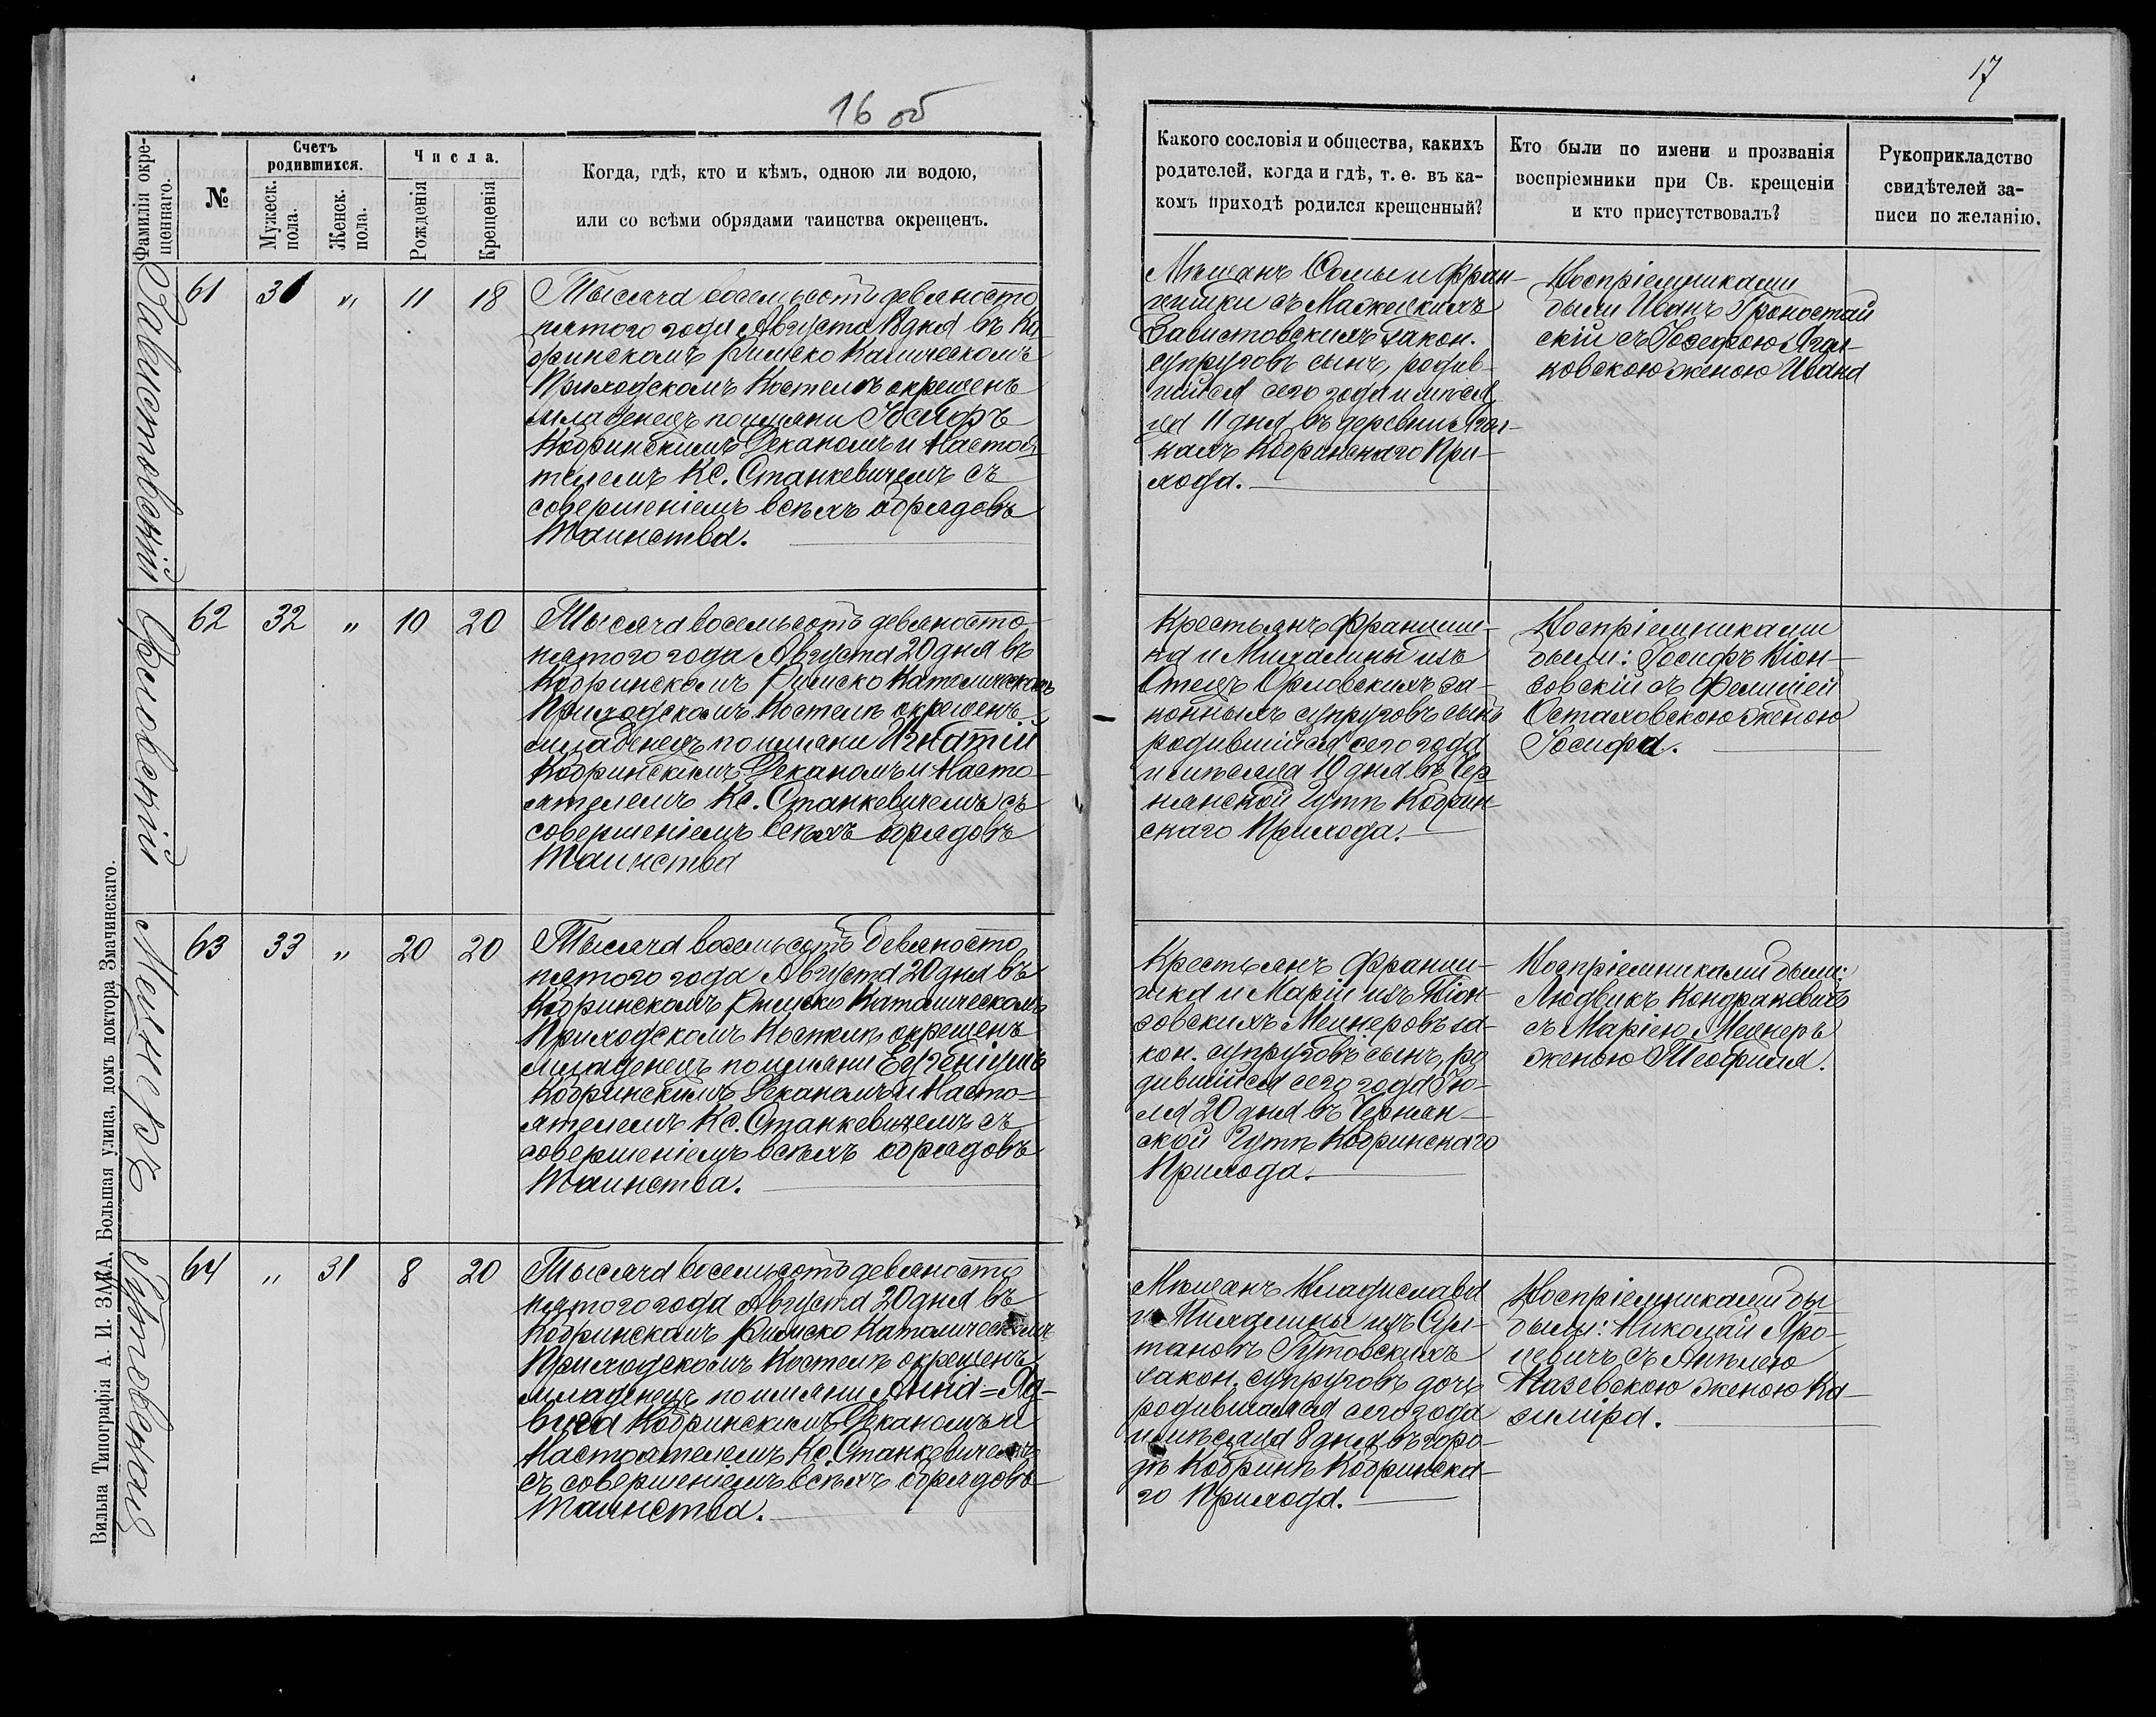 16 об
17
Фамилія окре-
щеннаго.
№
Счетъ
родившихся.
Мужеск.
пола.
Женск.
пола.
Числа.
Рожденія
Крещенія
Когда, гдѣ, кто и кѣмъ, одною ли водою,
или со всѣми обрядами таинства окрещенъ.
Какого сословія и общества, какихъ
родителей, когда и гдѣ, т. е. въ ка-
комъ приходѣ родился крещенный?
Кто были по имени и прозванія
воспріемники при Св. крещеніи
и кто присутствовалъ?
Рукоприкладство
свидѣтелей за-
писи по желанію.
Завистовскій
61 31 " 11 18
Тысяча восемьсотъ девяносто
пятого года Августа 18 дня въ Ко-
бринскомъ Римско Католическомъ
Приходскомъ Костелѣ окрещенъ
младенецъ по имяни Іосифъ
Кобринскимъ Деканомъ и Настоя
телемъ Кс. Станкевичемъ съ
совершеніемъ всѣхъ обрядовъ
Таинства.
Мѣщанъ Ѳомы и Фран-
Завистовскихъ закон.
супруговъ сынъ, родив-
шійся сего года и мѣся
ца 11 дня въ деревни Яга-
кахъ Кобринскаго При-
хода.
Воспріемниками
были Иванъ Гроностай
скій съ Іозефою Яга-
ковскою женою Ивана
Орловскій
62 32 " 10 20
Тысяча восемьсотъ девяносто
пятого года Августа 20 дня въ
Кобринскомъ Римско Католическомъ
Приходскомъ Костелѣ окрещенъ
младенецъ по имяни Игнатій
Кобринскимъ Деканомъ и Насто-
ятелемъ Кс. Станкевичемъ съ
совершеніемъ всѣхъ обрядовъ
Таинства
Крестьянъ Франциш-
ка и Михалины изъ
Отецъ Орловскихъ за-
конныхъ супруговъ сынъ
родившійся сего года
и мѣсяца 10 дня въ Чер
нянской Гутѣ Кобрин-
скаго Прихода.
Воспріемниками
были: Іосифъ Кіон-
зовскій съ Фелиціей
Остаховскою женою
Іосифа.
Мейнеръ
63 33 " 20 20
Тысяча восемьсотъ девяносто
пятого года Августа 20 дня въ
Кобринскомъ Римско Католическомъ
Приходскомъ Костелѣ окрещенъ
младенецъ по имяни Евгеніушъ
Кобринскимъ Деканомъ и Насто=
ятелемъ Кс. Станкевичемъ съ
совершеніемъ всѣхъ обрядовъ
Таинства.
Крестьянъ Франци-
шка и Маріи изъ Кіон-
зовскихъ Мейнеровъ за-
кон. супруговъ сынъ, ро
дившійся сего года Ію-
ля 20 дня въ Чернян-
ской Гутѣ Кобринскаго
Прихода.
Воспріемниками были:
Людвикъ Кондракевичъ
съ Маріею Мейнеръ
женою Теофиля.
Гутовская
64 " 31 8 20
Тысяча восемьсотъ девяносто
пятого года Августа 20 дня въ
Кобринскомъ Римско Католическомъ
Приходскомъ Костелѣ окрещенъ
младенецъ по имяни Анна=Яд-
вига Кобринскимъ Деканомъ и
Настоятелемъ Кс. Станкевичемъ
съ совершеніемъ всѣхъ обрядовъ
Таинства.
Мѣщанъ Владислава
и Михалины изъ Сул-
тановъ Гутовскихъ
закон. супруговъ дочь
родившаяся сего года
и мѣсяца 8 дня въ горо-
дѣ Кобринѣ Кобринска-
го Прихода.
Воспріемниками бы
были: Николай Яро-
шевичъ съ Анѣлею
Казевскою женою Ка-
зиміра.
Вильна Типографія А. И. ЗАКА, Большая улица, домъ доктора Змачинскаго.